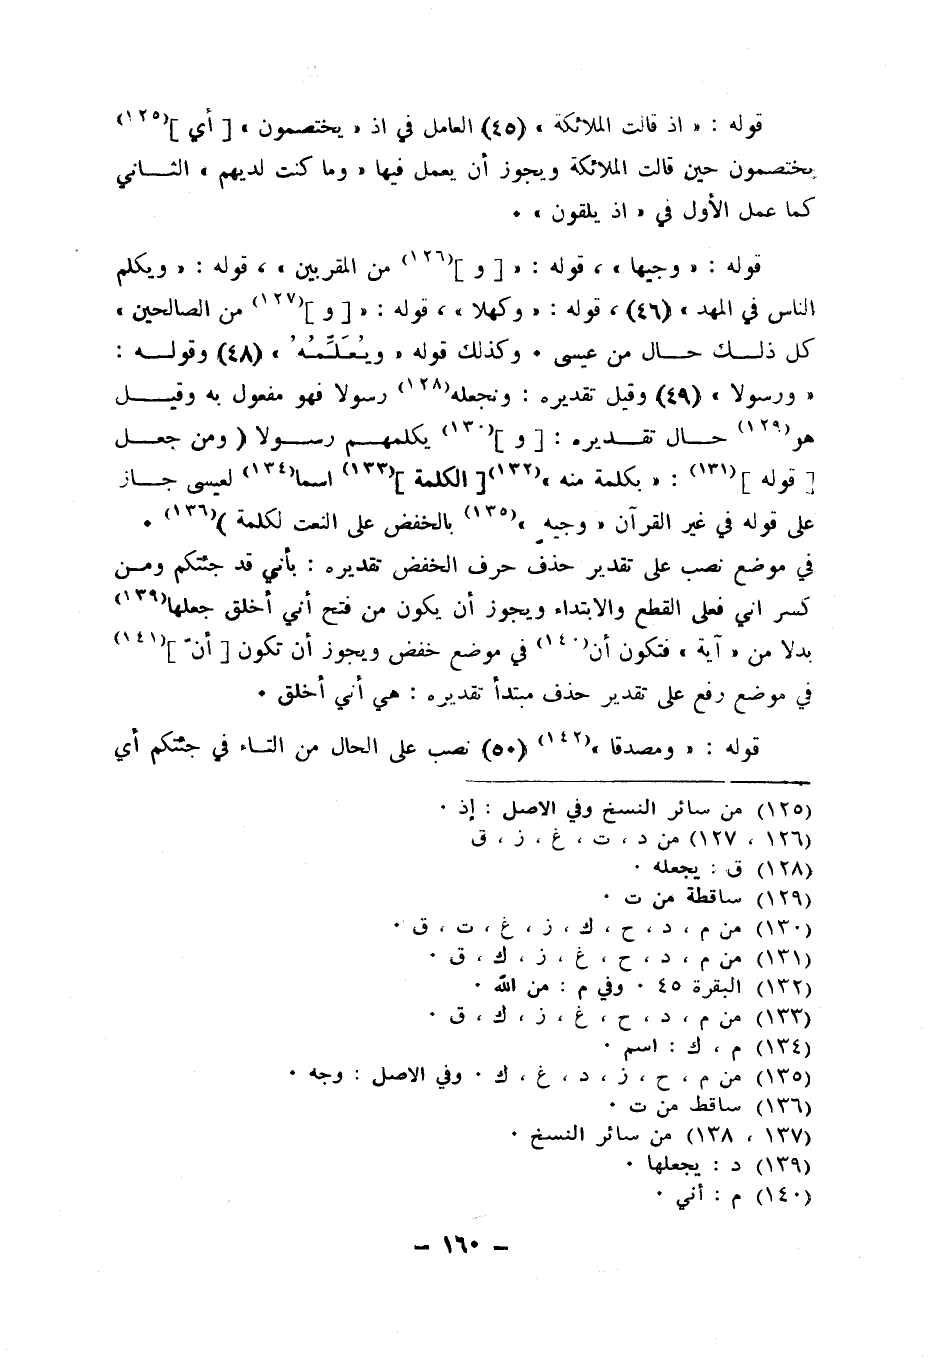 قوله : « اذ قالت الملائكة » (٤٥) العامل في اذ « يختصمون » [ أي ](١٢٥)
يختصمون حين قالت الملائكة ويجوز أن يعمل فيها « وما كنت لديهم » الثـــاني
كما عمل الأول في « اذ يلقون » ٠
قوله : « وجيها » ، قوله : « [ و ](١٢٦) من المقربين » ، قوله : « ويكلم
الناس في المهد » (٤٦) ، قوله : « وكهلا » ، قوله : « [ و ](١٢٧) من الصالحين »
كل ذلـــك حـــال من عيسى ٠ وكذلك قوله « ويُعَلِّمُهُ » (٤٨) وقولـــه :
« ورسولا » (٤٩) وقيل تقديره : ونجعله(١٢٨) رسولا فهو مفعول به وقيـــل
هو(١٢٩) حـــال تقـــديره : [ و ](١٣٠) يكلمهـــم رســـولا ( ومن جعـــل
[ قوله ](١٣١) : « بكلمة منه »(١٣٢)[ الكلمة ](١٣٣) اسما(١٣٤) لعيسى جـــاز
على قوله في غير القرآن « وجيهٍ »(١٣٥) بالخفض على النعت لكلمة )(١٣٦) ٠
في موضع نصب على تقدير حذف حرف الخفض تقديره : بأني قد جئتكم ومـــن
كسر اني فعلى القطع والابتداء ويجوز أن يكون من فتح أني أخلق جعلها(١٣٩)
بدلا من « آية » فتكون أن(١٤٠) في موضع خفض ويجوز أن تكون [ أنّ ](١٤١)
في موضع رفع على تقدير حذف مبتدأ تقديره : هي أني أخلق ٠
قوله : « ومصدقا »(١٤٢) (٥٠) نصب على الحال من التـــاء في جئتكم أي
(١٢٥) من سائر النسخ وفي الاصل : إذ ٠
(١٢٦ ، ١٢٧) من د ، ت ، غ ، ز ، ق
(١٢٨) ق : يجعله ٠
(١٢٩) ساقطة من ت ٠
(١٣٠) من م ، د ، ح ، ك ، ز ، غ ، ت ، ق ٠
(١٣١) من م ، د ، ح ، غ ، ز ، ك ، ق ٠
(١٣٢) البقرة ٤٥ ٠ وفي م : من الله ٠
(١٣٣) من م ، د ، ح ، غ ، ز ، ك ، ق ٠
(١٣٤) م ، ك : اسم ٠
(١٣٥) من م ، ح ، ز ، د ، غ ، ك ٠ وفي الاصل : وجه ٠
(١٣٦) ساقط من ت ٠
(١٣٧ ، ١٣٨) من سائر النسخ ٠
(١٣٩) د : يجعلها ٠
(١٤٠) م : أني ٠
– ١٦٠ –